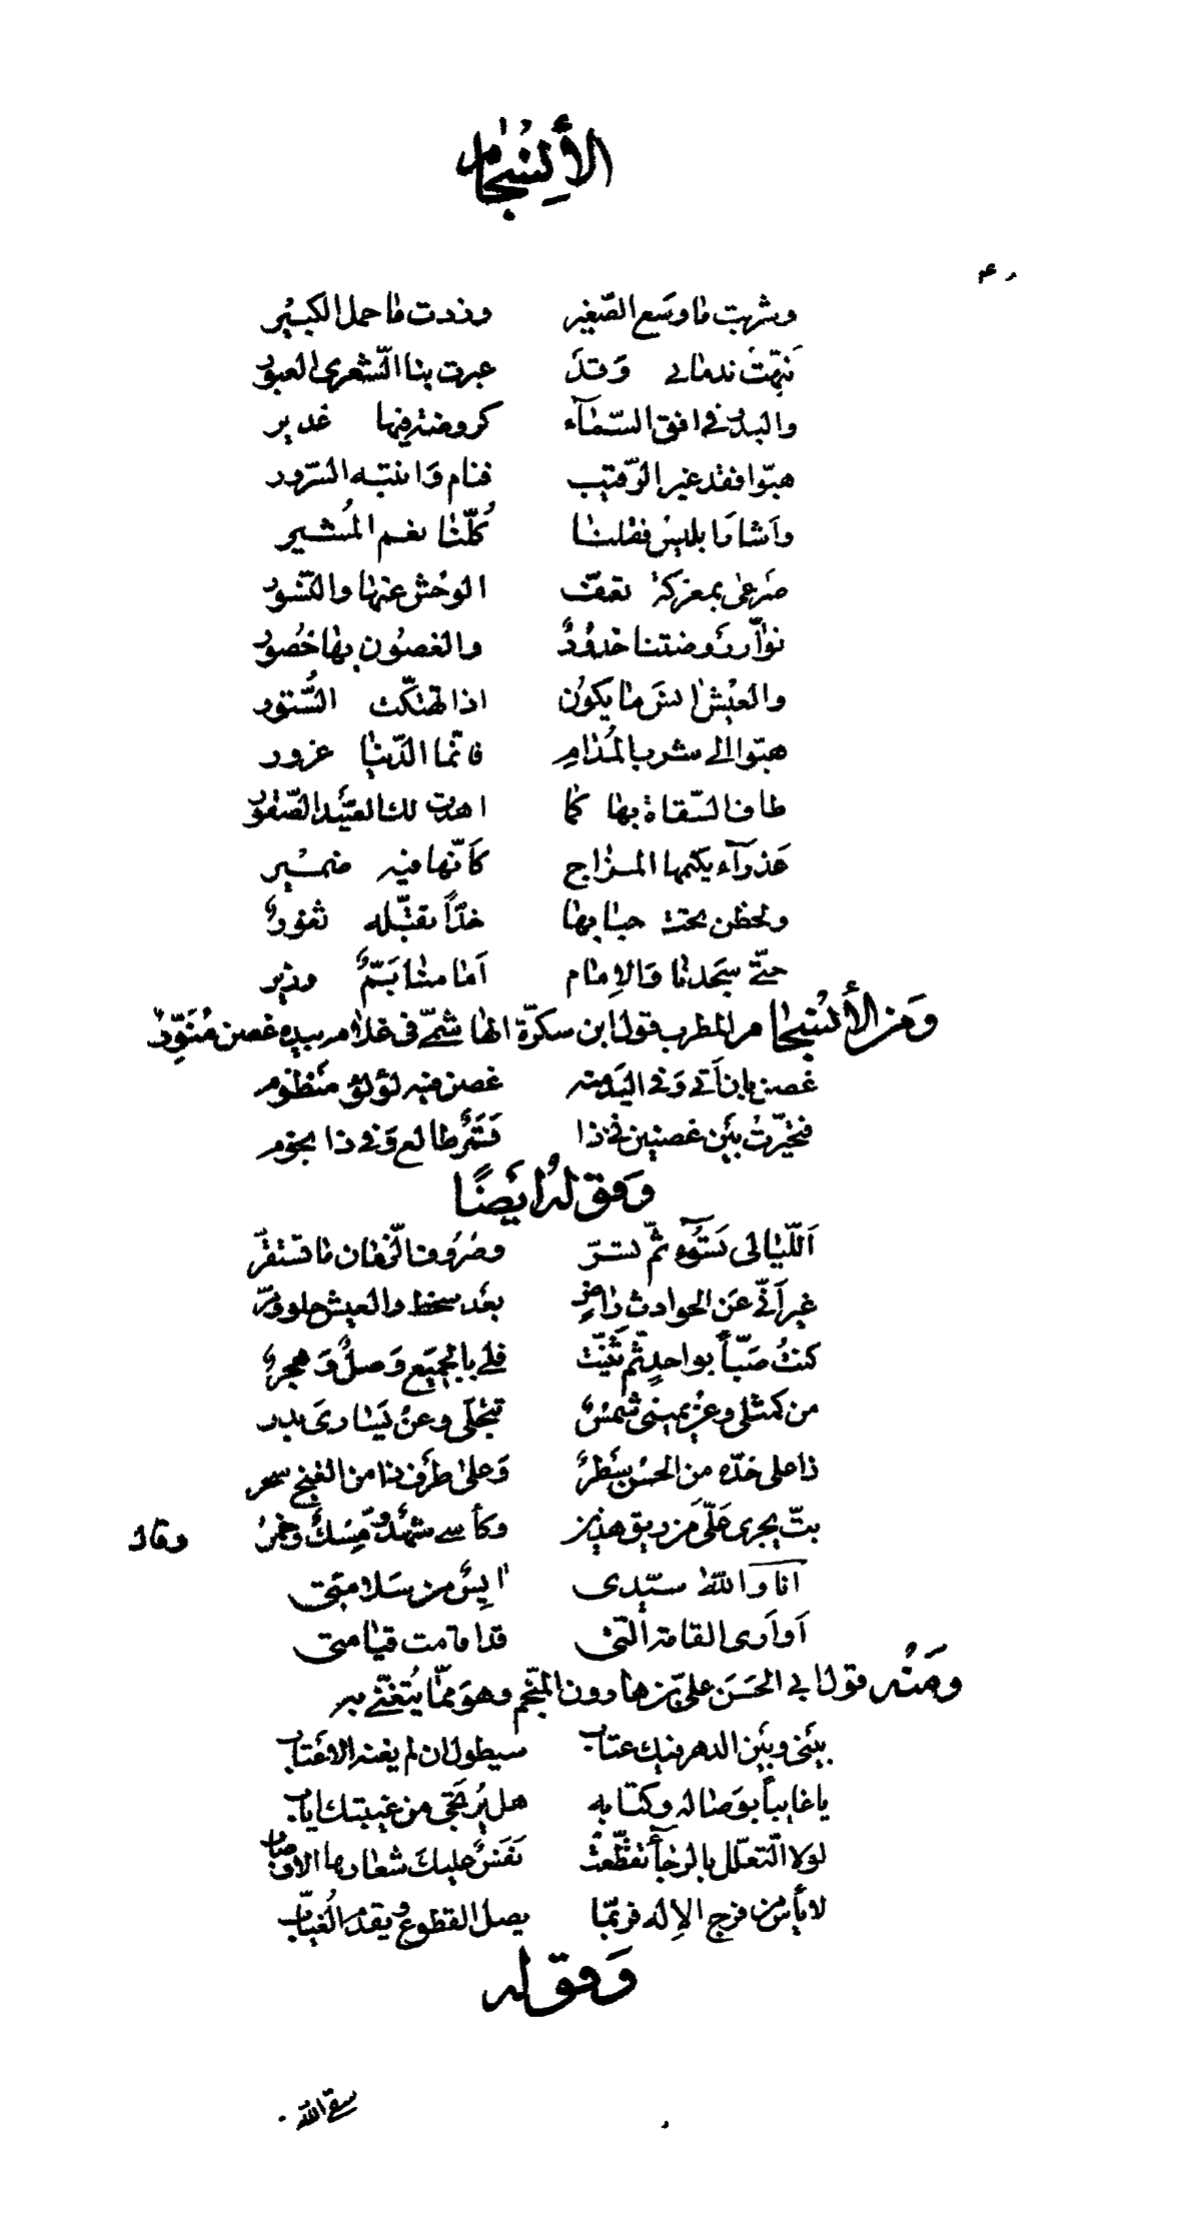 الأنسجام
وشربت ما وسع الصّغير وزدت ما حمل الكبير
نَبّهتُ ندمانی وَقد عبرت بنا الشّعرى العبور
والبدر فی افق السّمآء كروضة فيها غدير
هبّوا فقد غير الرّقيب فنام وَانتبه السّرور
وأشار ابليس فقلنا كُلّنا نعم المُشير
صَرعى بمعركة تعفّ الوحش عنها والنّسور
نوّار رَوضتنا خدُودٌ والغصُون بها خُصور
والعيش استر ما يكون اذا تهتّكت السُّتور
هبّوا الى شرب المُدامِ فانّما الدّنيا غرور
طاف السّقاة بها كما اهدت لك الصّيد الصّقور
عَذرآء يكتمها المزاج كَأنّها فيه ضمير
وتحظن تحت حبابها خدّاً تقبّله ثغورٌ
حتّى سجدنا وَالاِمام أمامنا بَمٌّ وزير
وَمن الأنسجام المطرب قول ابن سكرّة الهاشمیّ فی غلام بيده غصن مُنَوِّر
غصن بان أتى وَفی اليد منه غصن فيه لؤلؤ مَنظوم
فتحيّرتُ بَين غصنين فی ذا قَمَرٌ طالع وَفی ذا نجوم
وَقوله اَيضًا
اَللّيالی تَسُوء ثُمّ تسرّ وصُرُوف الزّمان ما تستقرّ
غير أنّی عَن الحوادث راضٍ بعد سخط والعيش حلو ومرّ
كنتُ صَبّاً بواحدٍ ثم ثَنّيت فلی بالجميع وَصلٌ وَهجرٌ
من كمثلی وعن يمينی شمسٌ تتجلّى وعن يَسارىَ بدر
ذا على خدّه من الحسُن سَطرٌ وَعلى طرف ذا من الغنج سحر
بتّ يجرى عَلَیّ من ريق هذين وكأسی شهدٌ ومِسكٌ وخمرٌ وقال
انا وَالله سيّدى اٰيِسٌ من سَلامتی
أو أرى القامة التی قد اقامت قيامتی
ومَنُه قول ابی الحَسَن علیّ بن هارون المنجّم وهوَ ممّا يُتغنّى به
بينی وبَين الدهر فيك عتاب سيطول ان لم يمحه الاعتاب
يا غايباً بوَصاله وكتابه هل يُرتجى من غيبتك اياب
لولا التّعلّل بالرجآء تقطّعت نَفسٌ عليك شعارها الاوصاب
لا يأس من فرج الاِله فربّما يصل القطوع ويقدم الغيّاب
وَقوله
سقى الله